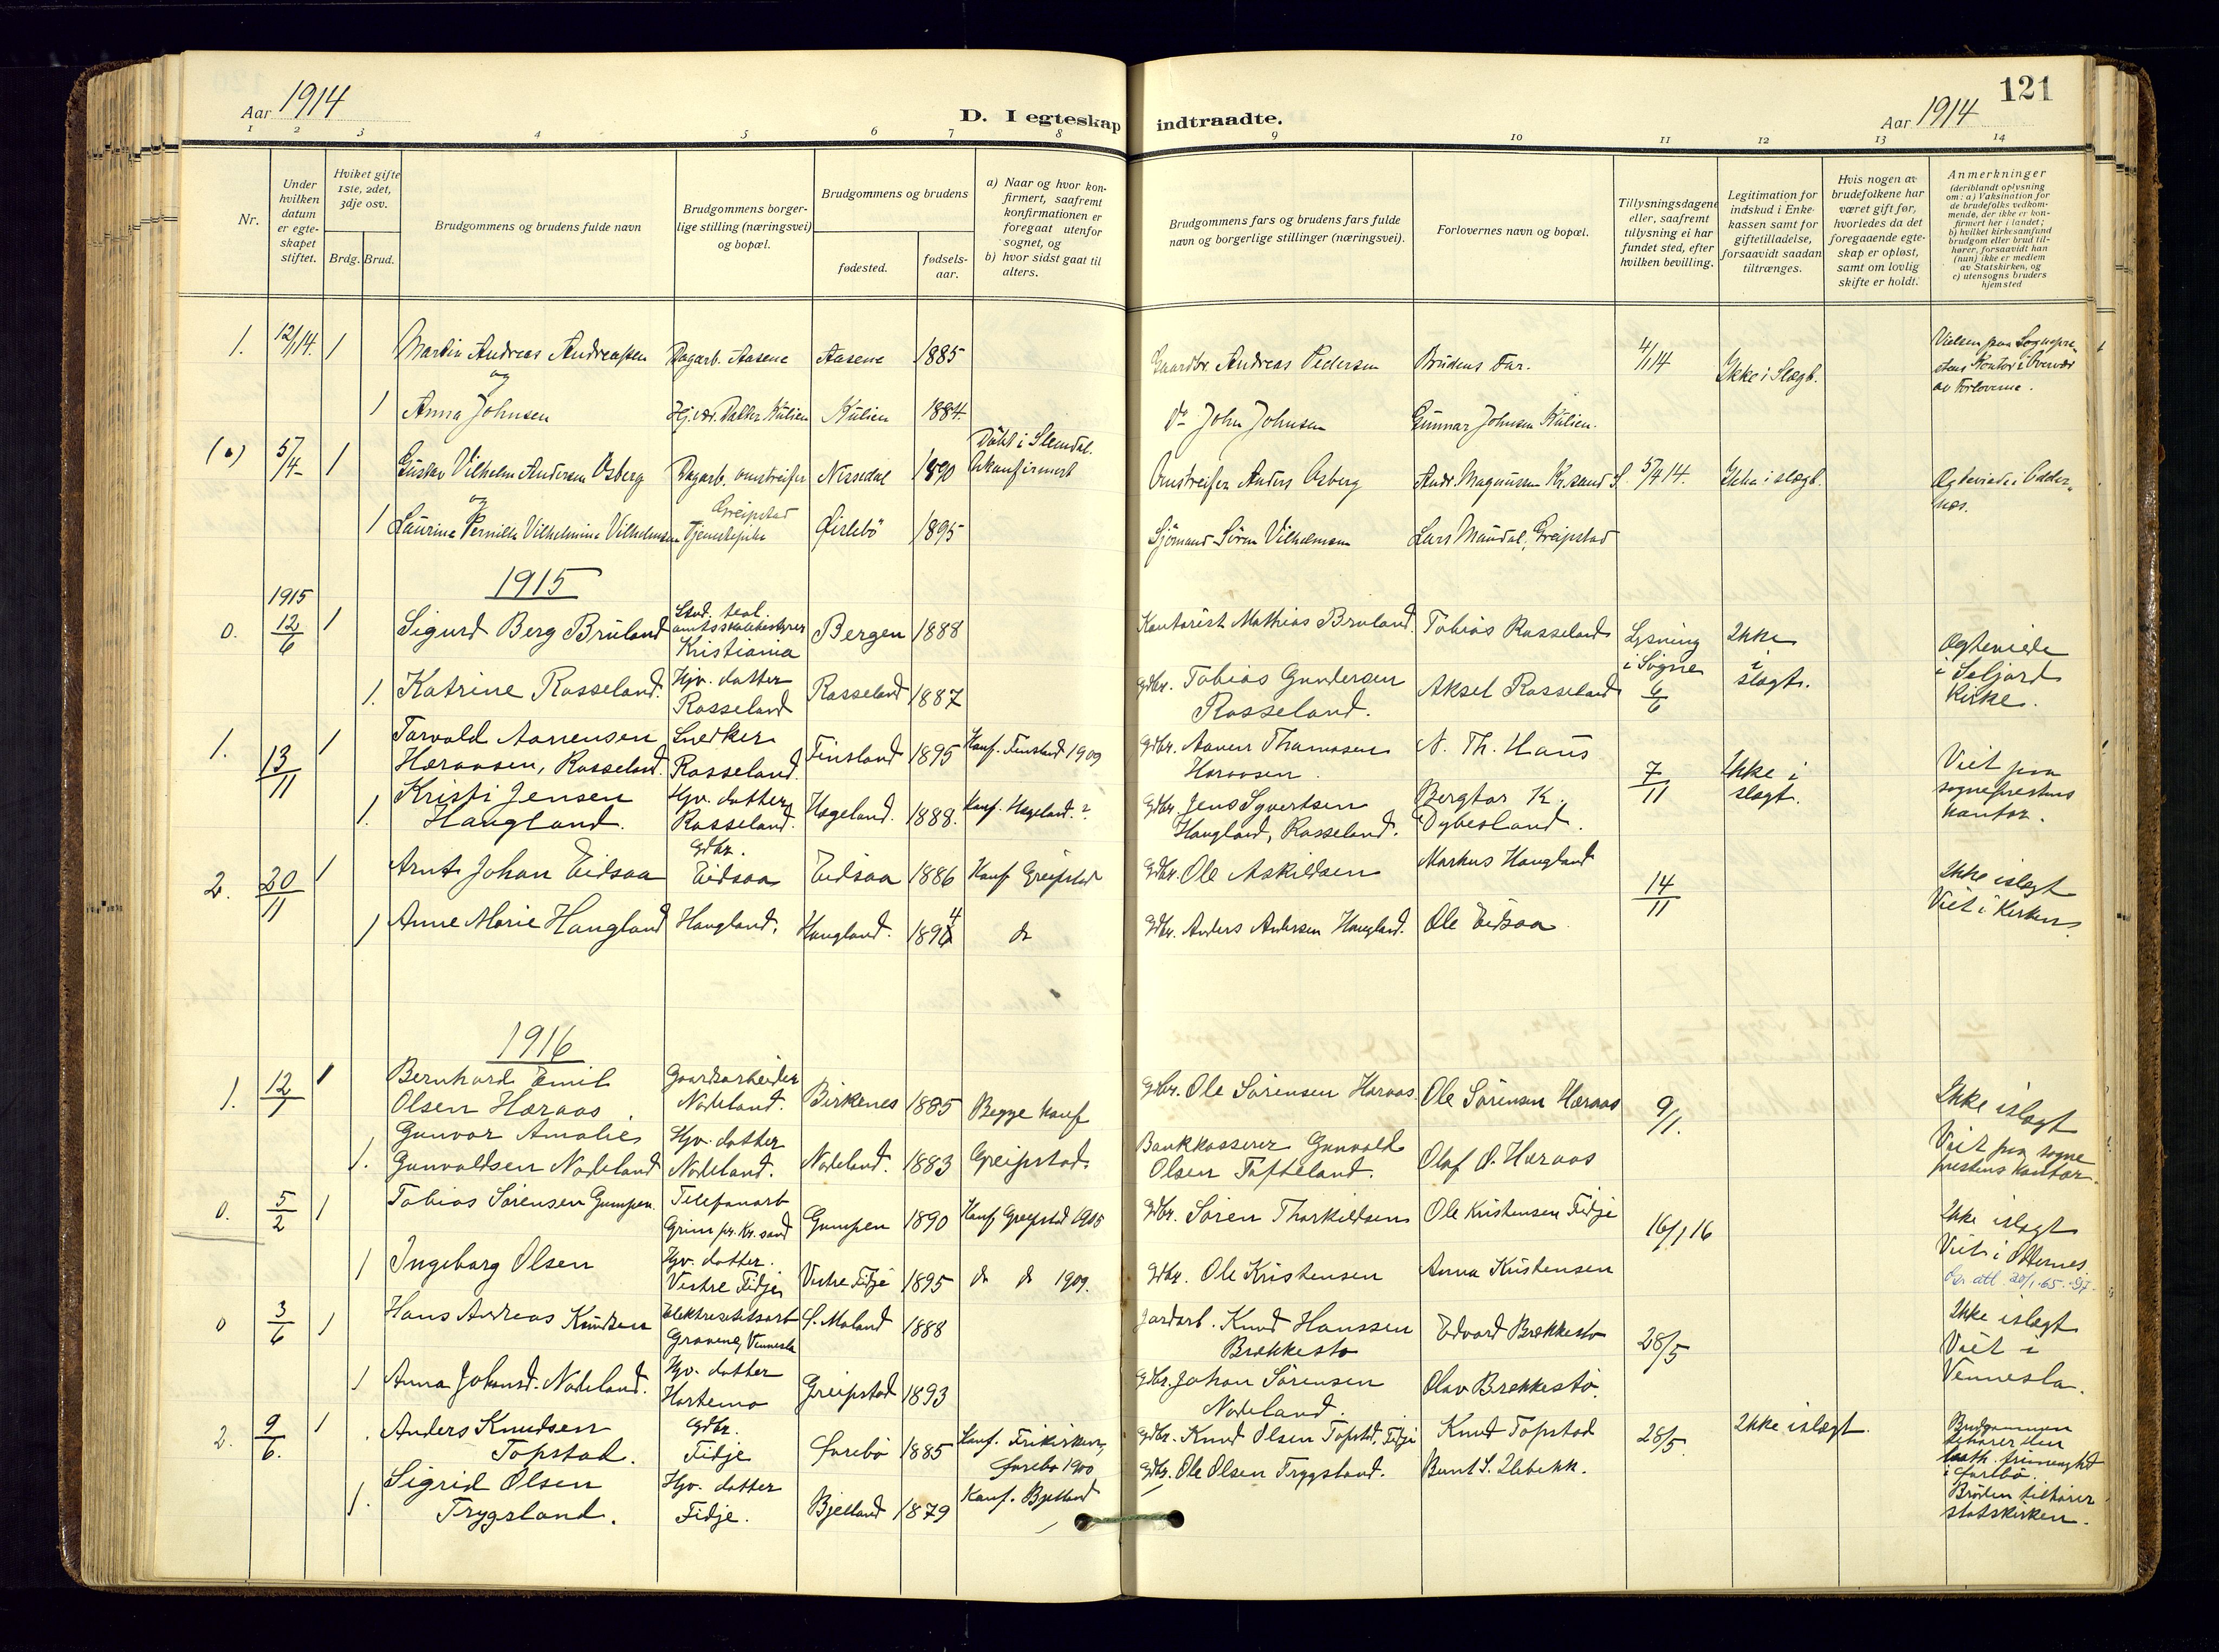 121
Aar 1914
D. I egteskap indtraadte.
Aar 1914
1 2 3 4 5 6 7 8 9 10 11 12 13 14
Nr.
Under hvilken datum er egte-skapet stiftet.
Hviket gifte 1ste, 2det, 3dje osv.
Brdg. Brud.
Brudgommens og brudens fulde navn
Brudgommens borger-lige stilling (næringsvei) og bopæl.
Brudgommens og brudens
fødested.
fødsels-aar.
a) Naar og hvor kon-firmert, saafremt konfirmationen er foregaat utenfor sognet, og
b) hvor sidst gaat til alters.
Brudgommens fars og brudens fars fulde navn og borgerlige stillinger (næringsvei).
Forlovernes navn og bopæl.
Tillysningsdagene eller, saafremt tillysning ei har fundet sted, efter hvilken bevilling.
Legitimation for indskud i Enke-kassen samt for giftetilladelse, forsaavidt saadan tiltrænges.
Hvis nogen av brudefolkene har været gift før, hvorledes da det foregaaende egte-skap er opløst, samt om lovlig skifte er holdt.
Anmerkninger
(deriblandt oplysning om: a) Vaksination for de brudefolks vedkom-mende, der ikke er kon-firmert her i landet; b) hvilket kirkesamfund brudgom eller brud til-hører, forsaavidt han (hun) ikke er medlem av Statskirken, og c) utensogns bruders hjemsted
1. 12/1 14. 1 Martin Andreas Andreassen Dagarb. Aasene Aasene 1885 Gaardbr. Andreas Pedersen Brudens Far. 4/1 14 Ikke i Slægt. Vielsen paa Sognepre-
og stens Kontor i Overvær
av Forloverne.
1 Anna Johnsen Hj.vær. Datter Kulien Kulien 1884. Do John Johnsen Gunnar Johnsen Kulien.
(0) 5/4- 1 Gustav Vilhelm Andersen Osberg Dagarb. omstreifer Nissedal 1890 Døbt i Slemdal.
Ukonfirmert Omstreifer Anders Osberg Andr. Magnusen Kr.sand S. 5/4 14. Ikke i slægt. Egteviede i Odder-
nes.
og
1 Laurine Pernille Vilhelmine Vilhelmsen Greipstad
Tjenestepike Øislebø 1895 Sjømand Søren Vilhelmsen Lars Mandal, Greipstad
1915
1915
0. 12/6 1 Sigurd Berg Bruland Stud. teol.
Kristiania Bergen 1888 Kontorist Mathias Bruland. Tobias Rosseland Lysning
i Søgne
6/6 Ikke
i
slægt. Egteviede
i Seljord
Kirke.
1. Katrine Rosseland. Hjv. datter
Rosseland Rosseland 1887 Gdbr. Tobias Gundersen
Rosseland. Aksel Rosseland
1. 13/11 1 Torvald Aanensen
Heraasen, Rosseland. Snedker
Rosseland. Finsland 1895 Konf. Finsland 1909 Gdbr. Aanen Thomasen
Heraasen. N. Th. Haus 7/11 Ikke i
slægt. Viet paa
sogneprestens
kontor.
1. Kristi Jensen
Haugland. Hjv. datter
Rosseland. Hægeland. 1888. Konf. Hægeland.? Gdbr. Jens Syvertsen
Haugland, Rosseland. Bergtor K.
Dybesland.
2. 20/11 1 Arnt Johan Eidsaa Gdbr.
Eidsaa Eidsaa 1886 Konf Greipstad Gdbr. Ole Askildsen Markus Haugland 14/11 Ikke i slægt
Viet i Kirken.
1 Anne Marie Haugland Haugland. Haugland. 1894 do Gdbr. Anders Andersen Haugland. Ole Eidsaa.
1916
1. 12/1 1 Bernhard Emil
Olsen Heraas. Gaardsarbeider
Nodeland. Birkenes 1885 Begge konf Gdbr. Ole Sørensen Heraas. Ole Sørensen Heraas 9/1. Ikke i slægt
Viet paa sogne
prestens kontor.
1. Gunvor Amalie
Gunvaldsen Nodeland Hjv. datter
Nodeland. Nodeland. 1883 Greipstad. Bankkasserer Gunvald
Olsen Tofteland. Olaf O. Heraas
0. 5/2 1 Tobias Sørensen Gumpen. Telefonarb
Grim pr. Kr.sand Gumpen 1890 Konf Greipstad 1905 Gdbr. Søren Thorkildsen Ole Kristensen Fidje 16/1 16 Ikke i slægt
Viet i Oddernes.
1 Ingeborg Olsen Hjv. datter.
Vestre Fidje Vestre Fidje 1895 do do 1909. Gdbr. Ole Kristensen Anna Kristensen
0 3/6 1 Hans Andreas Knudsen Elektrisitetsarb
Graveng Vennesla S. Moland 1888 Jordarb. Knud Hanssen
Brekkestø Edvard Brekkestø 28/5 Ikke i slægt
Viet i
Vennesla.
1 Anna Johansd. Nodeland. Hjv. datter
Hortemo Greipstad 1893 Gdbr. Johan Sørensen
Nodeland. Olav Brekkestø.
2. 9/6. 1 Anders Knudsen
Topstad. Gdbr.
Fidje Øvrebø 1885 Konf. Frikirken,
Øvrebø 1900 Gdbr. Knud Olsen Topstad, Fidje Knud Topstad 28/5. Ikke i slægt. Brudgommen
tilhører den
luth. frimenighet
i Øvrebø.
Bruden tilhører
statskirken.
1. Sigrid Olsen
Trygsland. Hjv. datter
Fidje. Bjelland 1879 Konf. Bjelland Gdbr. Ole Olsen Trygsland.